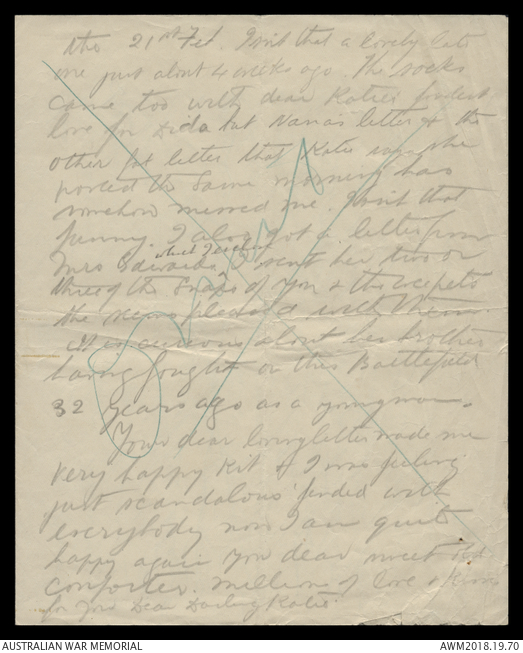 the 21st Feb. Isnt that a lovely late
one just about 4 weeks ago. The socks
came too with dear Katie's fondest
love for Dida but Nana's letter & the
other fat letter that Katie says she
posted the same morning has
somehow missed me. Isnt that
funny. I also got a letter from
Mrs Edwards sent her two or
three of the Snaps of you & the
the pleased with them.
It is curious about her brother
having fought on this Battlefield
32 years ago as a young man.
Your dear loving letter made me
very happy Kit & I was feeling
just scandalous fended with
everybody now I am quite
happy again you dear sweet
comforter. Millions of love & Kisses
for you Dear Darling Katie.
AUSTRALIAN WAR MEMORIAL
AWM2018.19.70